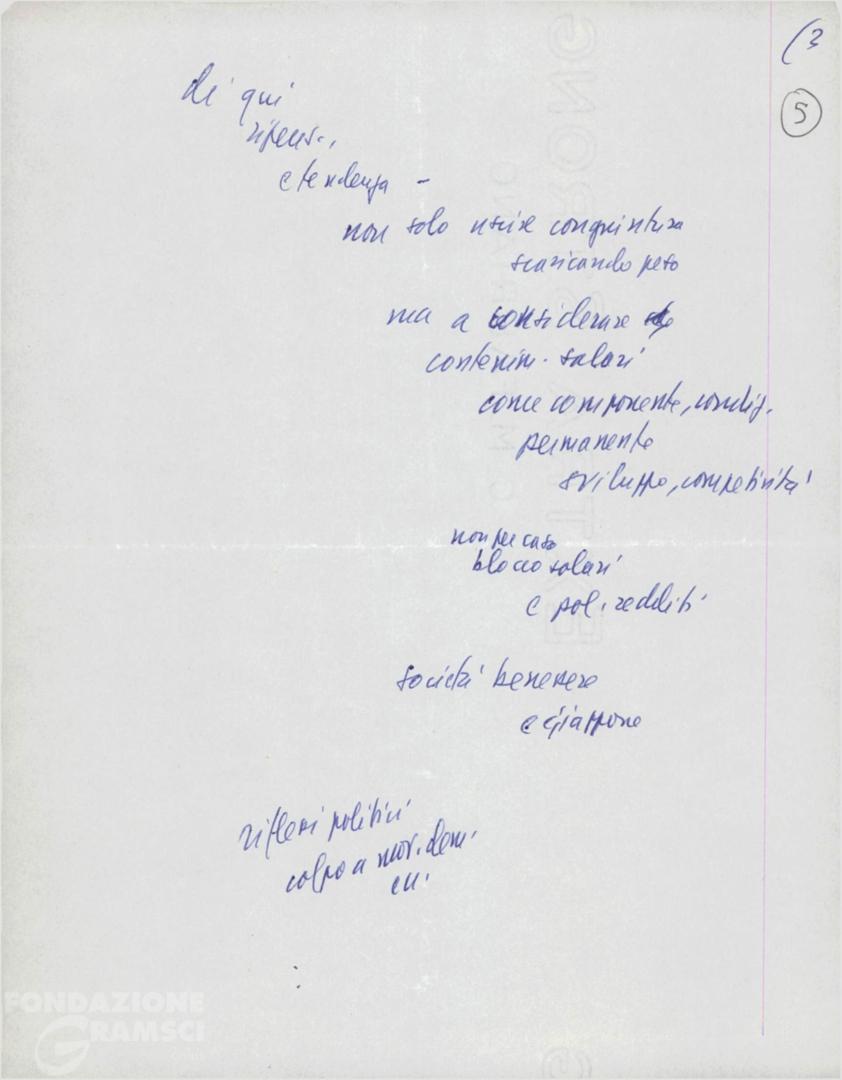 (3
5
di qui
e tendenza -
non solo uscire congiuntura
scaricando peso
ma a considerare
contenim. salari
come componente, condiz.
permanente
sviluppo, competività
non per caso
blocco salari
e pol. redditi
società benessere
e Giappone
riflessi politici
colpo a mov. dem.
FONDAZIONE
GRAMSCI